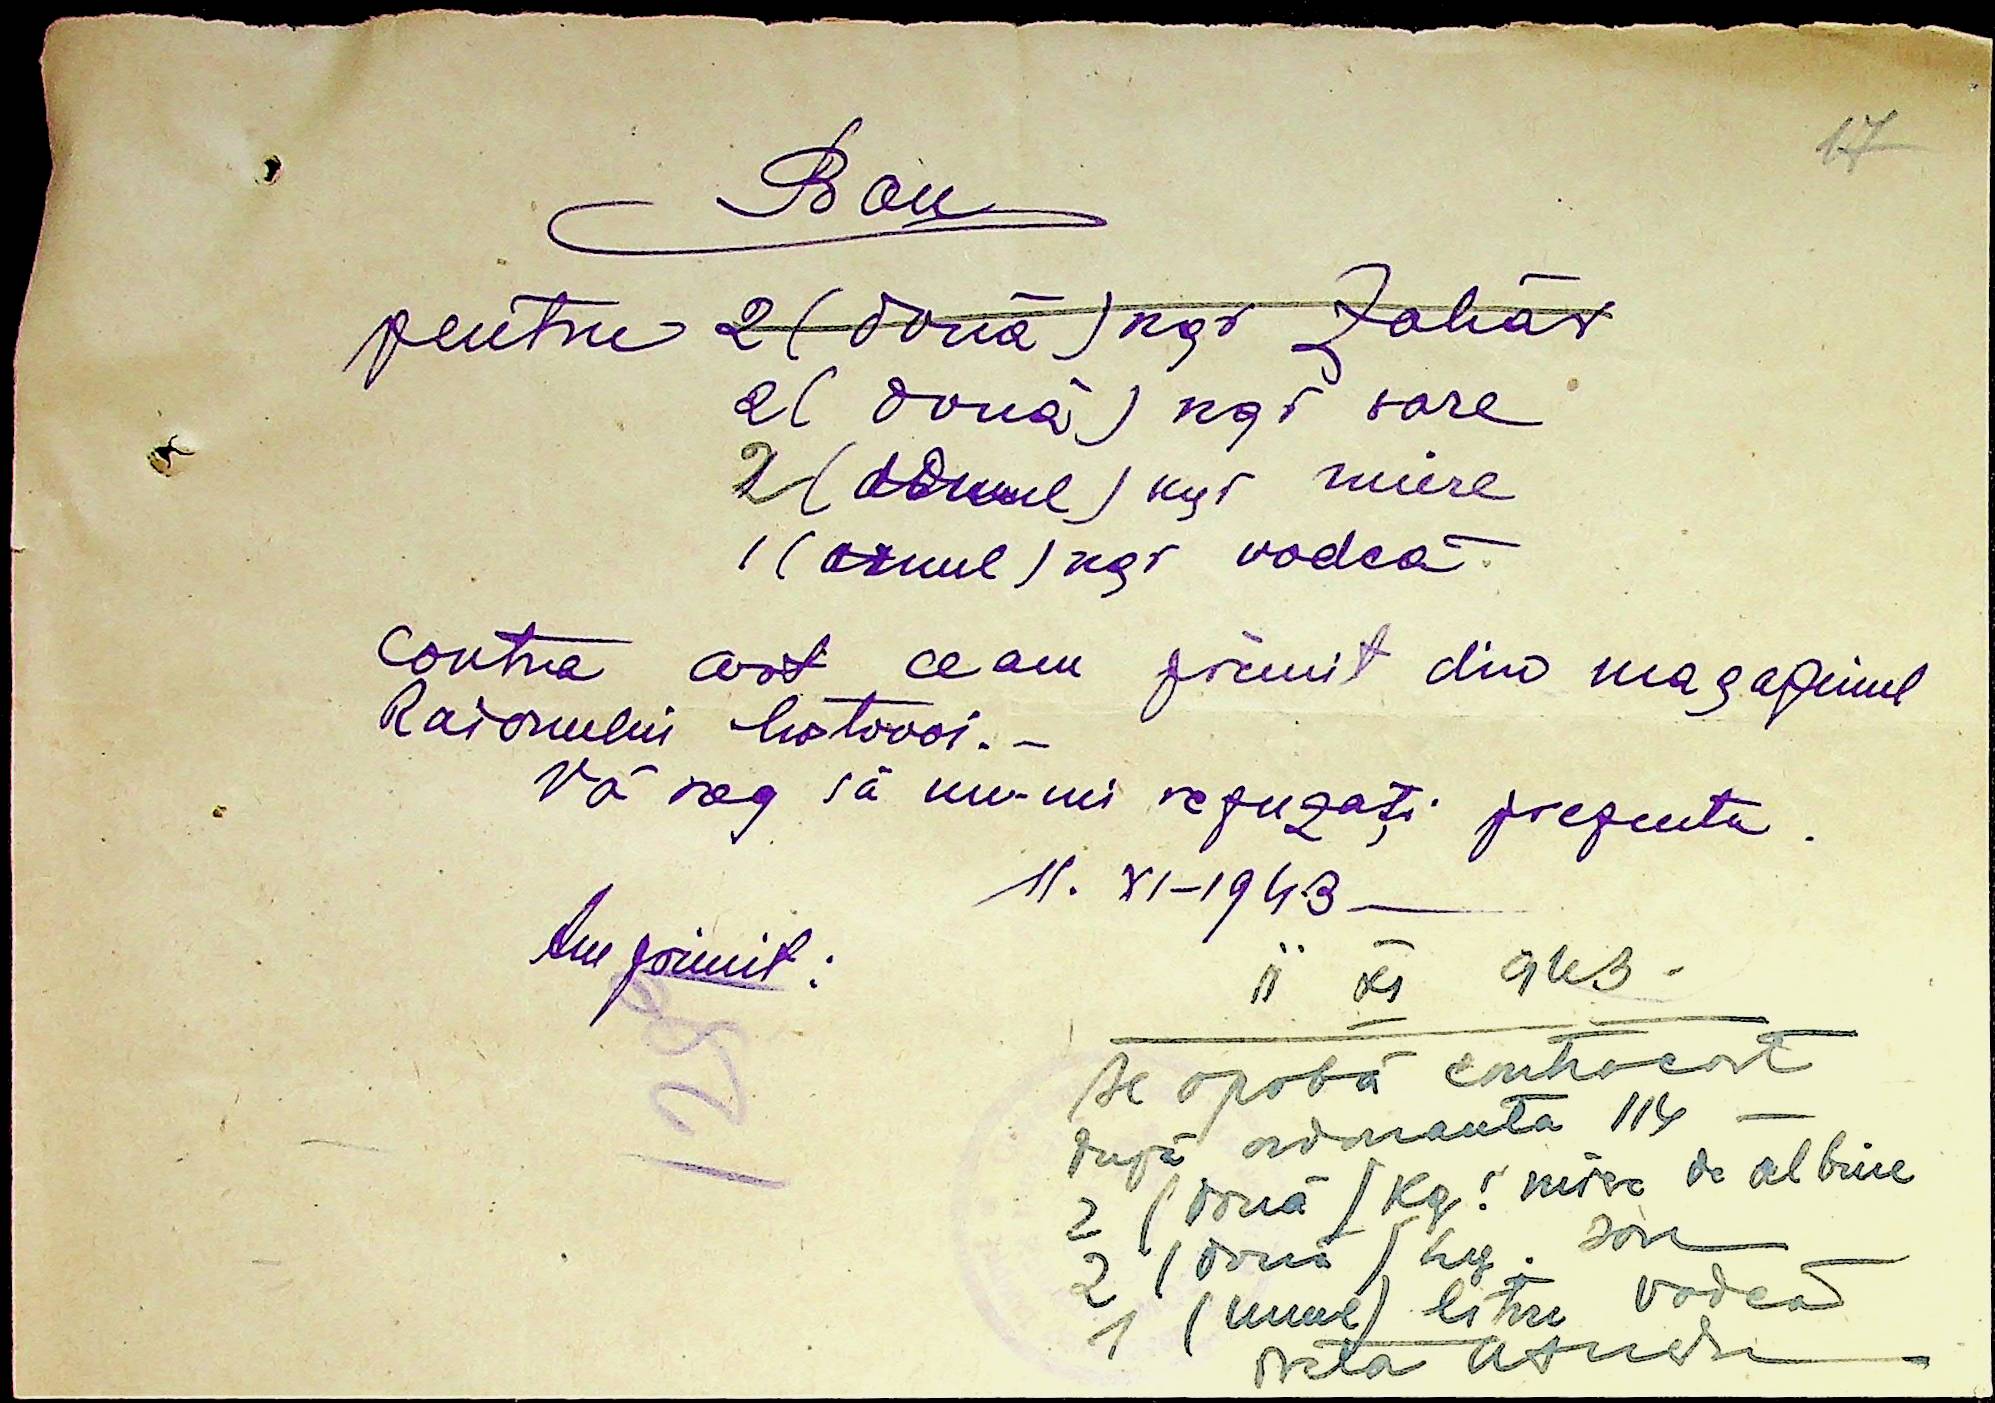 17
Bon
pentru 2 (două) kgr Zahăr
2 (două) kgr sare
2 () kgr miere
1 (unul) kgr vodcă
Contra cost ce am primit din magazinul
Raionului Liotovoi. -
Vă rog să nu-mi refuzați prezenta.
11. XI-1943
Am primit:
1280
11 XI 943.
Se aprobă contracost
după ordonanta 114
2 (două) Kg. miere de albine
2 (două) kg. sare
1 (unul) litru vodcă